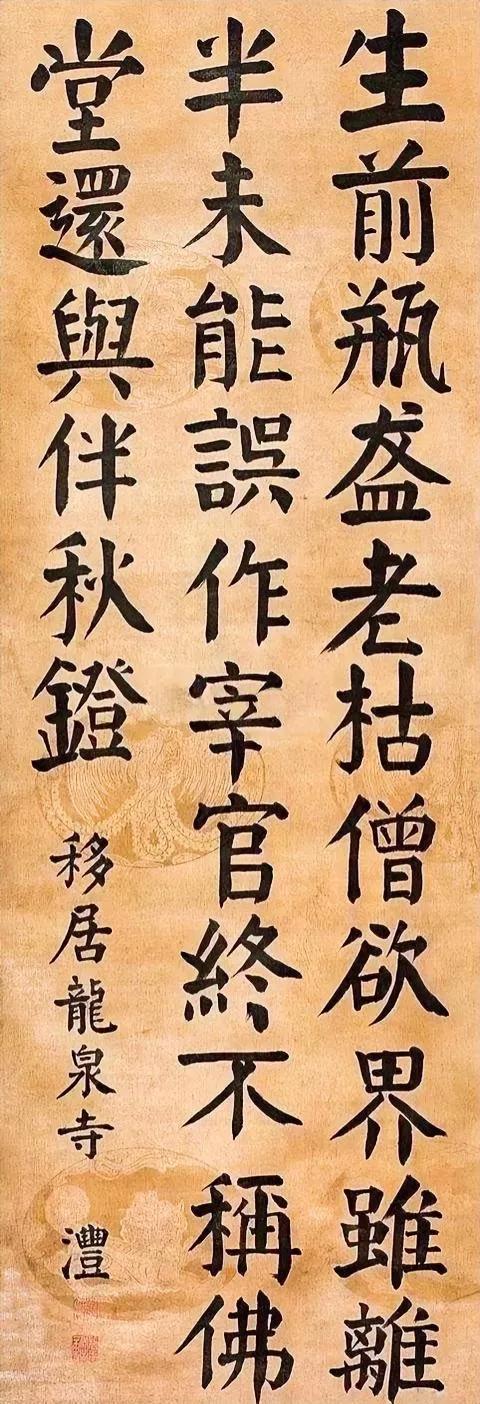 生前瓶盋老枯僧欲界雖離
半未能誤作宰官終不稱佛
堂還與伴秋鐙
移居龍泉寺
灃